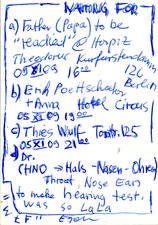 WAITING FOR
a) Father (Papa) to be
"readied" @ Hospiz
Theodorus Kurfürstendamm
05 XII 09 16 00 126
Berlin
b) Erid Poettschator
+ Anna Hotel Circus,
05 XII 09 19 00
c) Thies Wulf Torstr. 125
05 XII 09 21 00
d) Dr.
(HNO → Hals - Nasen - Ohren)
Throat, Nose Ear
to make hearing test.
was so LaLa